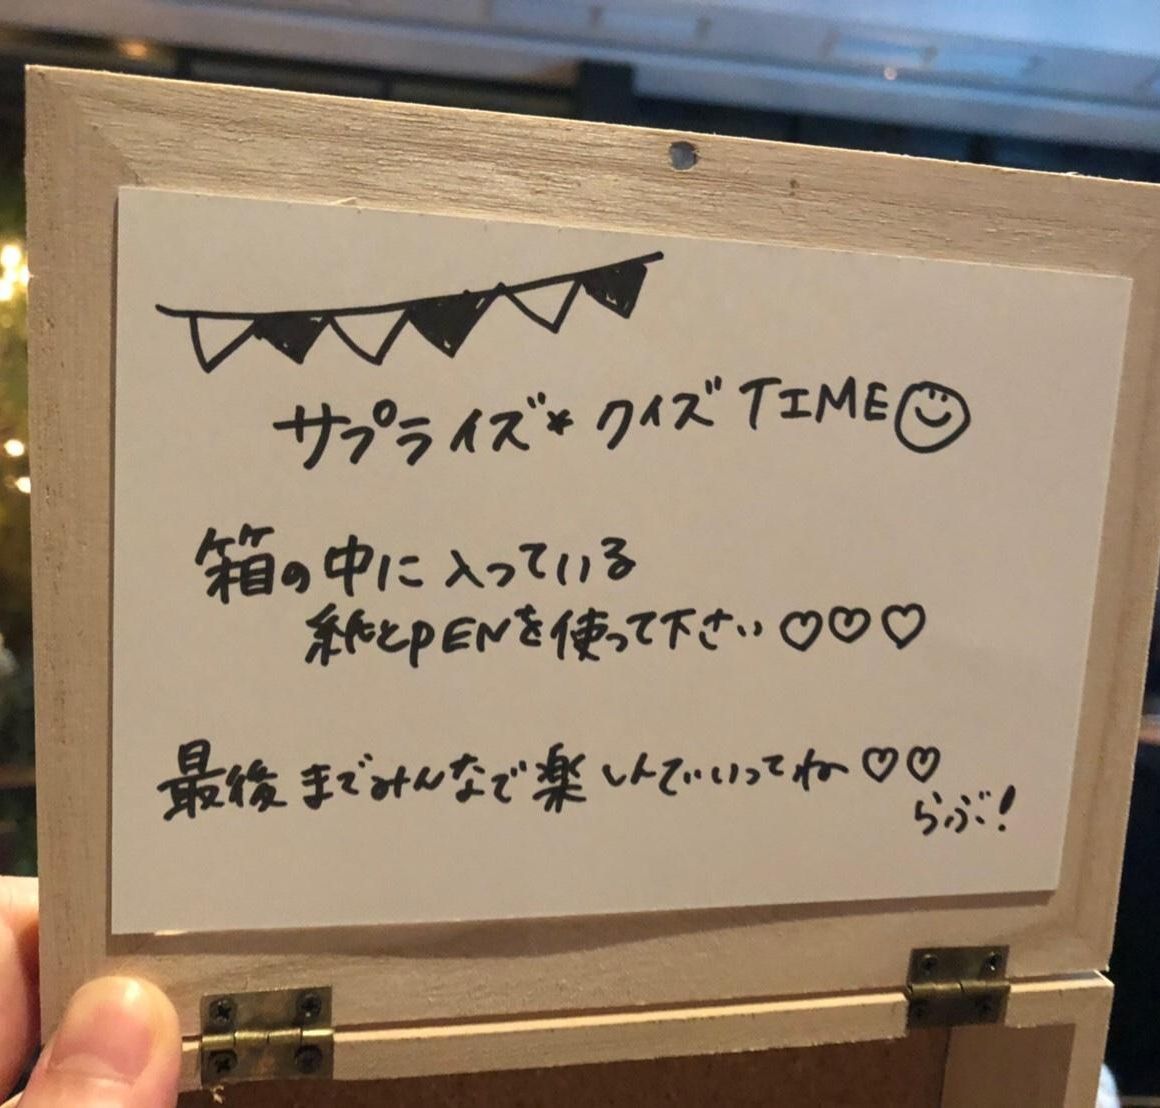 サプライズ*クイズTIME
箱の中に入っている
紙とPENを使って下さい♡♡♡
最後までみんなで楽しんでいってね♡♡
らぶ!